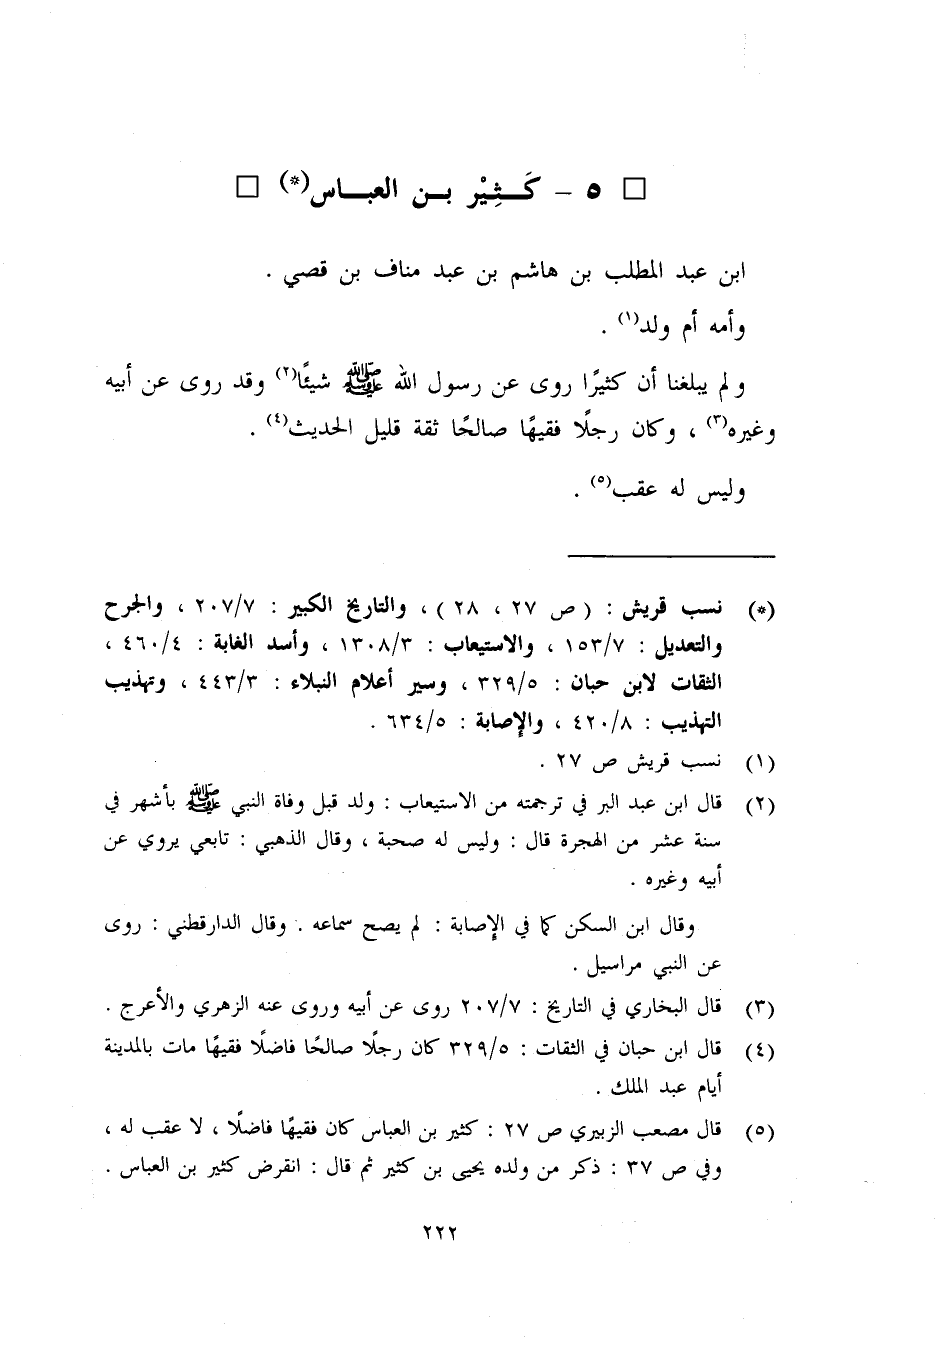 □ ٥ – كَـثِيْر بـن العبـاس(*) □
ابن عبد المطلب بن هاشم بن عبد مناف بن قصي .
وأمه أم ولد(١) .
ولم يبلغنا أن كثيرًا روى عن رسول الله ﷺ شيئًا(٢) وقد روى عن أبيه
وغيره(٣) ، وكان رجلًا فقيهًا صالحًا ثقة قليل الحديث(٤) .
وليس له عقب(٥) .
(*) نسب قريش : ( ص ٢٧ ، ٢٨ ) ، والتاريخ الكبير : ٢٠٧/٧ ، والجرح
والتعديل : ١٥٣/٧ ، والاستيعاب : ١٣٠٨/٣ ، وأسد الغابة : ٤٦٠/٤ ،
الثقات لابن حبان : ٣٢٩/٥ ، وسير أعلام النبلاء : ٤٤٣/٣ ، وتهذيب
التهذيب : ٤٢٠/٨ ، والإصابة : ٦٣٤/٥ .
(١) نسب قريش ص ٢٧ .
(٢) قال ابن عبد البر في ترجمته من الاستيعاب : ولد قبل وفاة النبي ﷺ بأشهر في
سنة عشر من الهجرة قال : وليس له صحبة ، وقال الذهبي : تابعي يروي عن
أبيه وغيره .
وقال ابن السكن كما في الإصابة : لم يصح سماعه . وقال الدارقطني : روى
عن النبي مراسيل .
(٣) قال البخاري في التاريخ : ٢٠٧/٧ روى عن أبيه وروى عنه الزهري والأعرج .
(٤) قال ابن حبان في الثقات : ٣٢٩/٥ كان رجلًا صالحًا فاضلًا فقيهًا مات بالمدينة
أيام عبد الملك .
(٥) قال مصعب الزبيري ص ٢٧ : كثير بن العباس كان فقيهًا فاضلًا ، لا عقب له ،
وفي ص ٣٧ : ذكر من ولده يحيى بن كثير ثم قال : انقرض كثير بن العباس .
٢٢٢